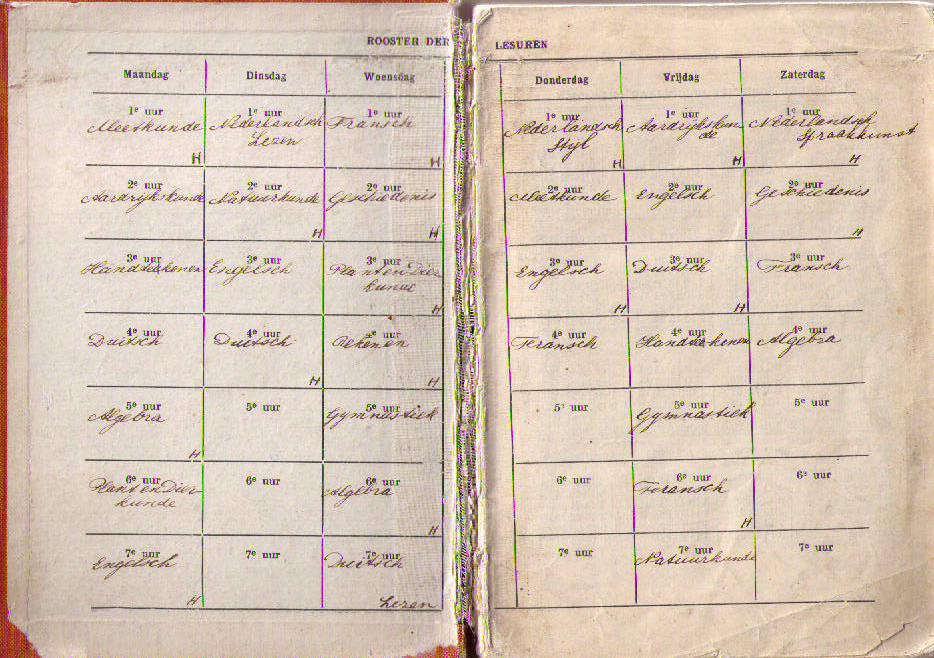 ROOSTER DER LESUREN
Maandag Dinsdag Woensdag Donderdag Vrijdag Zaterdag
1e uur 1e uur 1e uur 1e uur 1e uur 1e uur
Meetkunde Nederlandsch Fransch Nederlandsch Aardrijkskun Nederlandsch
Lezen Styl de Spraakkunst
H H H H H
2e uur 2e uur 2e uur 2e uur 2e uur 2e uur
Aardrijkskunde Natuurkunde Geschiedenis Meetkunde Engelsch Geschiedenis
H H H
3e uur 3e uur 3e uur 3e uur 3e uur 3e uur
Handteekenen Engelsch Plant en Dier Engelsch Duitsch Fransch
kunde
H H H
4e uur 4e uur 4e uur 4e uur 4e uur 4e uur
Duitsch Duitsch Rekenen Fransch Handteekenen Algebra
H H
5e uur 5e uur 5e uur 5e uur 5e uur 5e uur
Algebra Gymnastiek Gymnastiek
H
6e uur 6e uur 6e uur 6e uur 6e uur 6e uur
Plant en Dier Algebra Fransch
kunde
H H
7e uur 7e uur 7e uur 7e uur 7e uur 7e uur
Engelsch Duitsch Natuurkunde
H Lezen